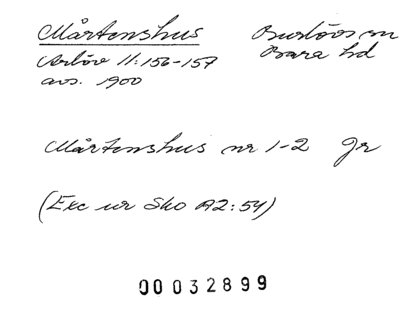 Mårtenshus Burlövs sn
Arlöv 11:156-157 Bara hd
avs. 1900
Mårtenshus nr 1-2 Gr
(Exc ur Sko A2:54)
00032899